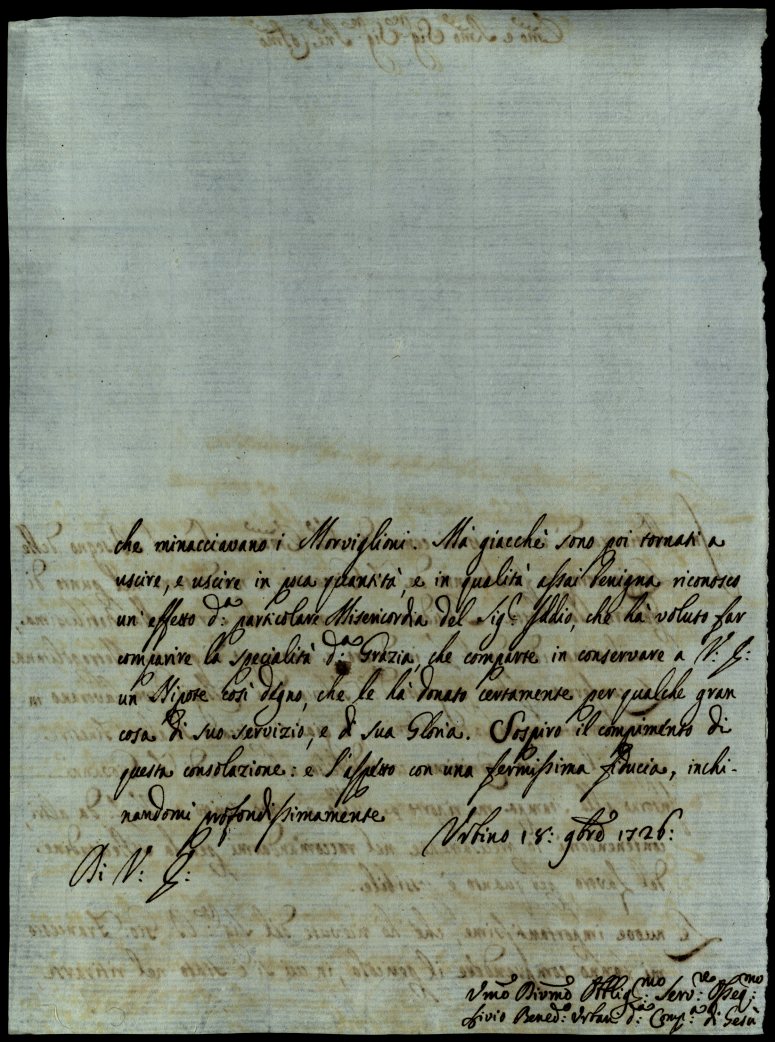 che minacciavano i Morviglioni. Mà giacchè sono poi tornati a
uscire, e uscire in poca quantità, e in qualità assai benigna riconosco
un' effetto d:ª particolare Misericordia del Sig:r Iddio, che hà voluto far
comparire la specialità d:ª Grazia, che comparte in conservare a V: E:
un Nipote così degno, che le hà donato certamente per qualche gran
cosa di suo servizio, e di sua Gloria. Sospiro il compimento di
questa consolazione: e l'aspetto con una fermissima fiducia, inchi-
nandomi profondissimamente
Urbino 18: 9bre 1726:
Di V: E:
Umo Divmo Obblig:mo Serv:re Osseq:mo
Livio Bened: Urban d:ª Comp:ª di Gesù